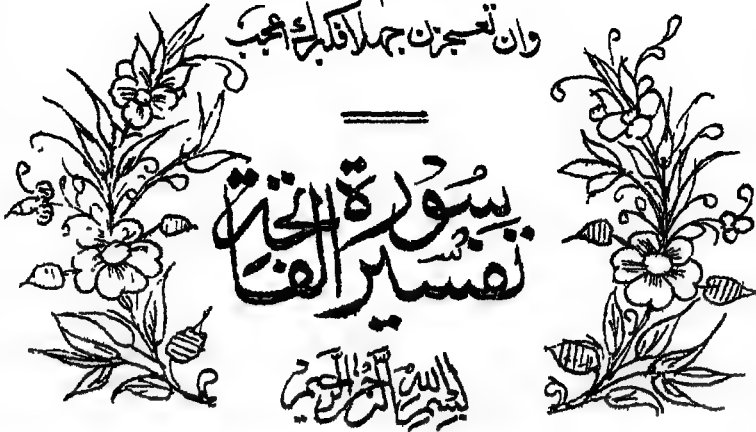 وان تعسجزن جهلا فكبرك اعجب
تفسير سورة الفاتحة
بسم الله الرحمن الرحيم